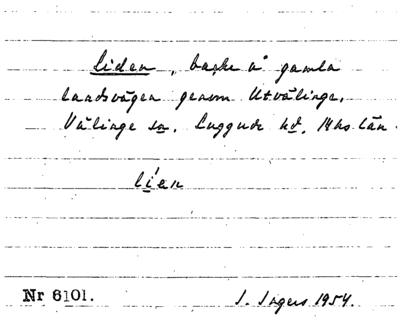 Liden, backe å gamla
landsvägen genom Utvälinge.
Välinge sn. Luggude hd. Mhs län.
líen
Nr 6101.
I. Ingers 1954.